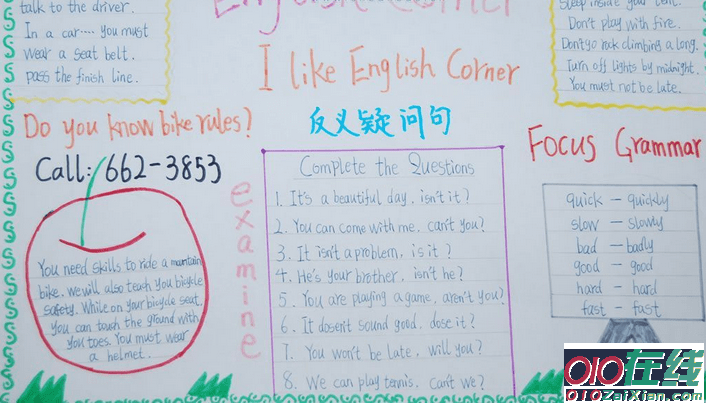 talk to the driver.
In a car.... you must
wear a seat belt.
pass the finish line.
English Corner
Sleep inside your tent.
Don't play with fire.
Dont go rock climbing a long.
Turn off lights by midnight.
You must not be late.
I like English Corner
Do you know bike rules?
Call: 662-3853
反义疑问句
Focus Grammar
examine
Complete the Questions
1. It's a beautiful day, isn't it?
2. You can come with me, can't you?
3. It isn't a problem, is it?
4. He's your brother, isn't he?
5. You are playing a game, aren't you?
6. It dosen't sound good, dose it?
7. You won't be late, will you?
8. We can play tennis, can't we?
quick — quickly
slow — slowly
bad — badly
good — good
hard — hard
fast — fast
You need skills to ride a mountain
bike. we will also teach you bicycle
safety. While on your bicycle seat,
you can touch the ground with
you toes. You must wear
a helmet.
010在线
010ZaiXian.com